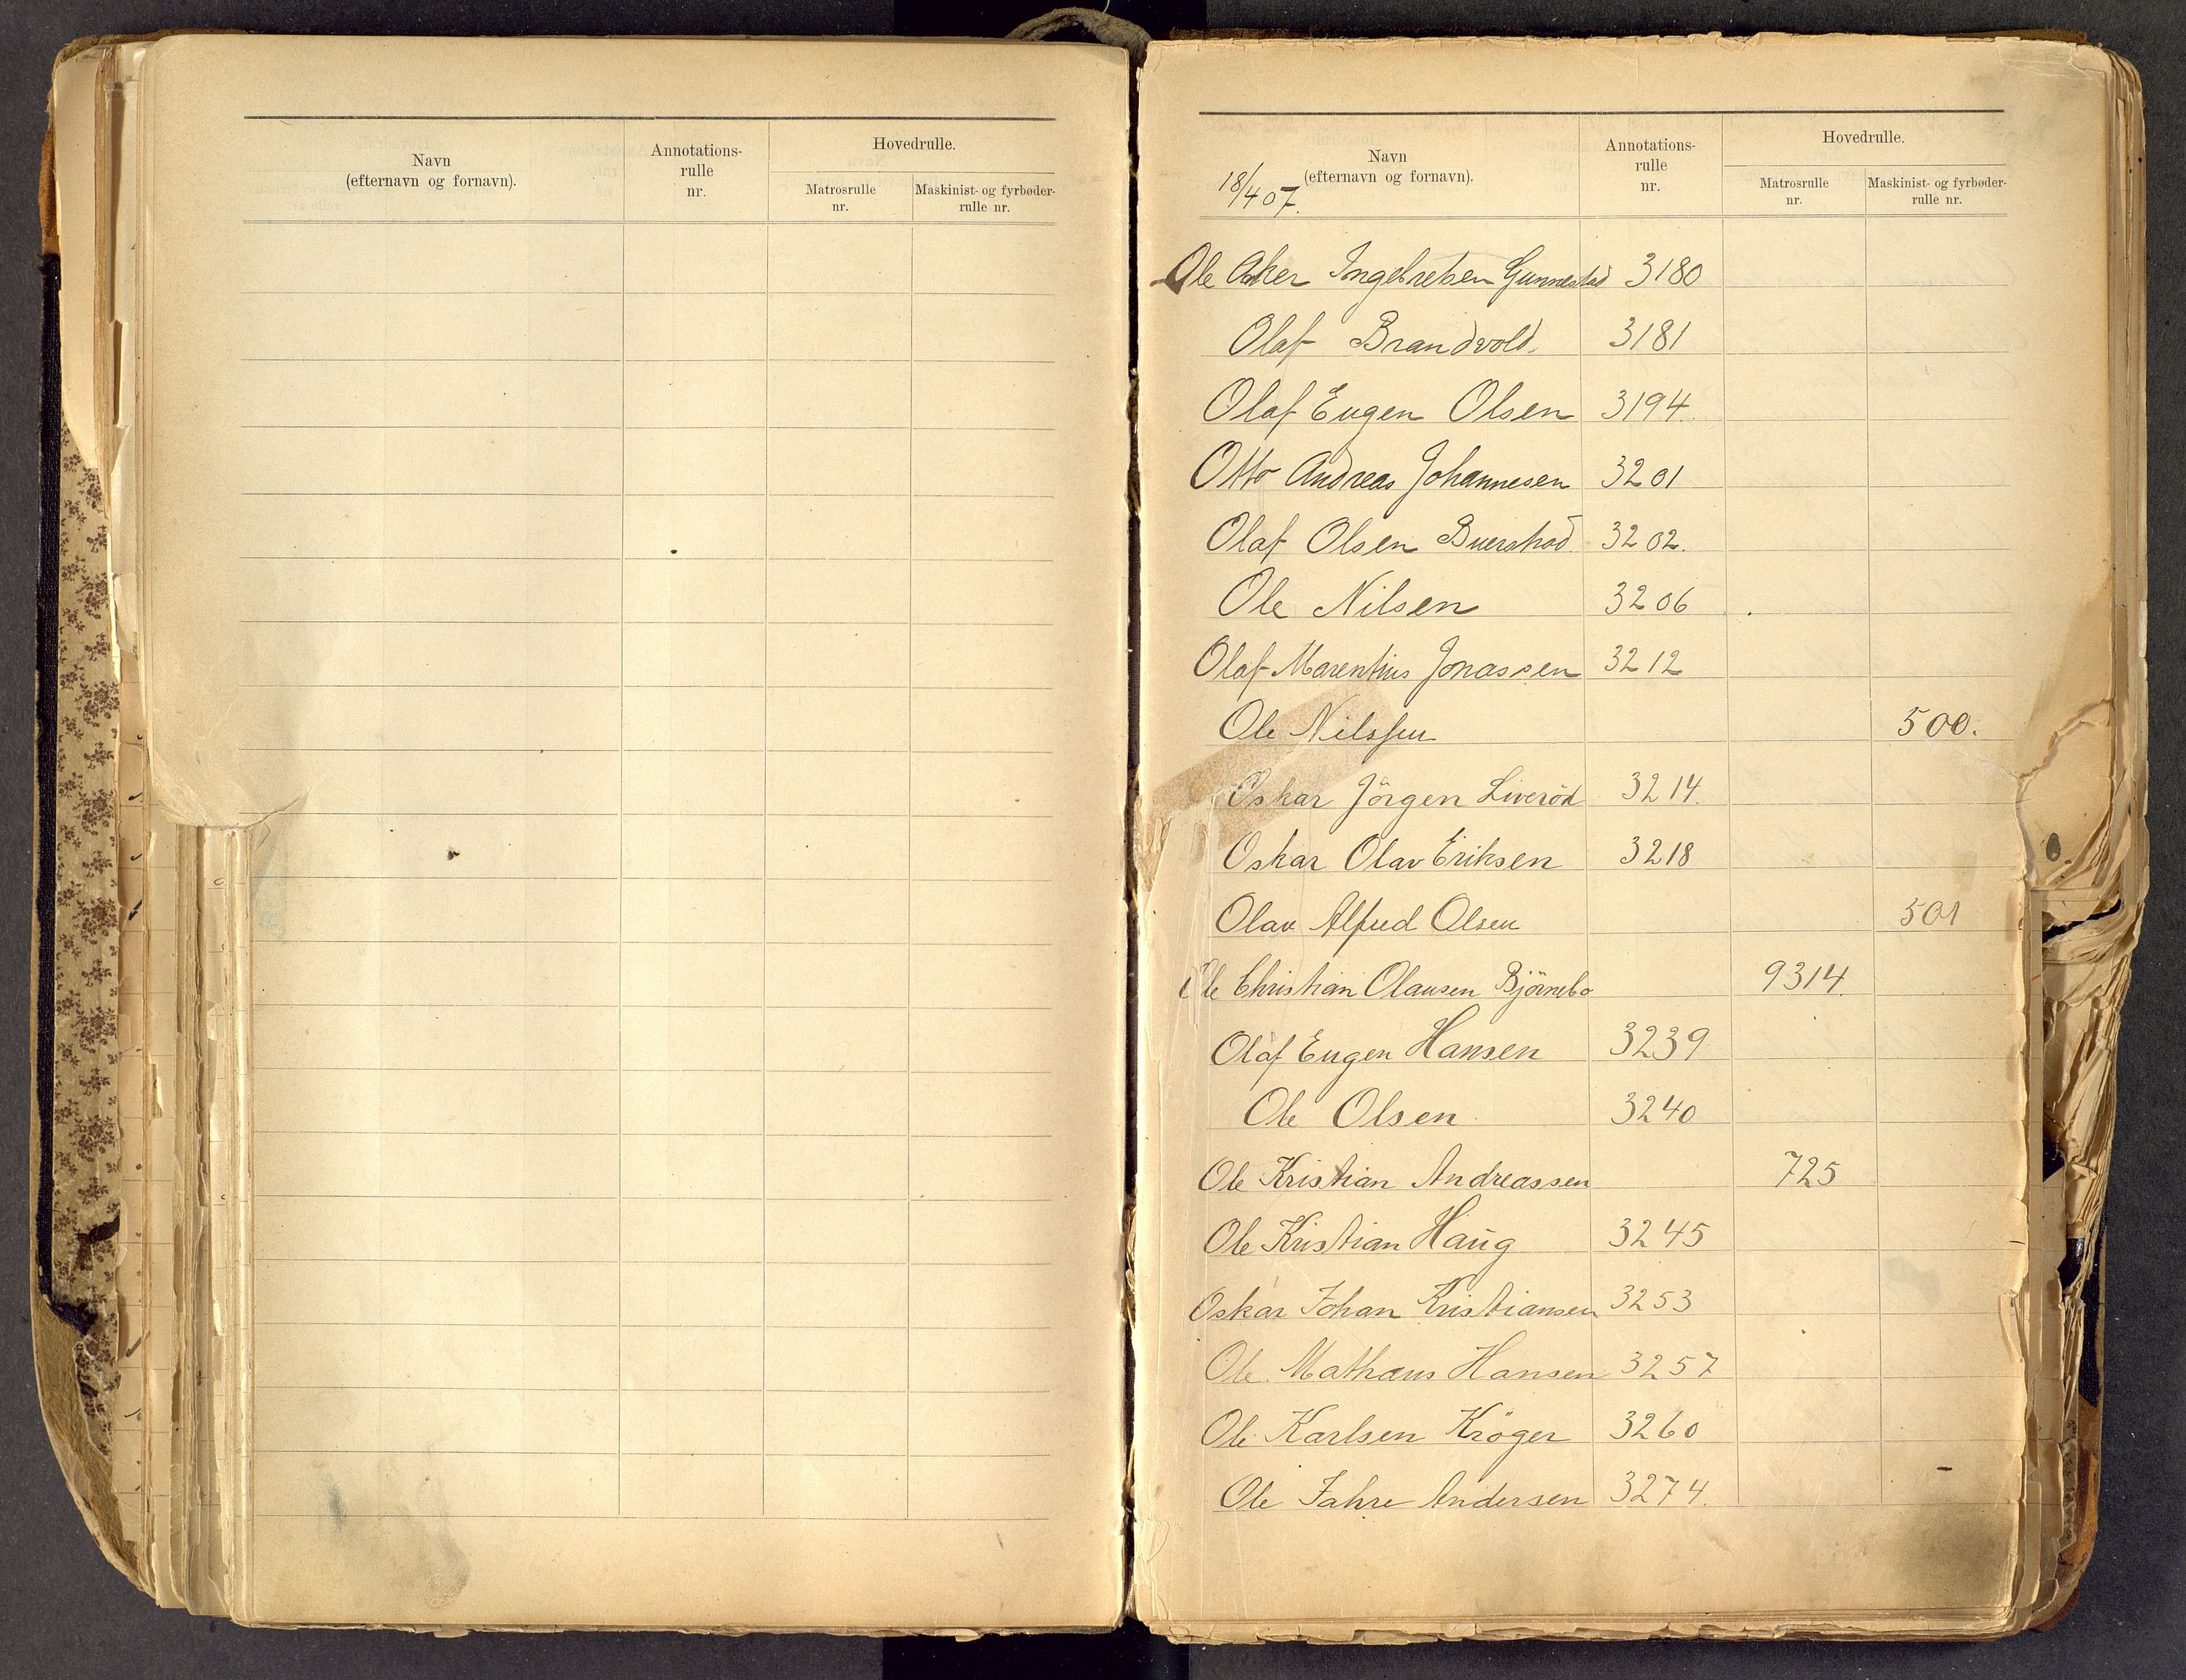 Navn
(efternavn og fornavn).
Annotations-
rulle
nr.
Hovedrulle.
Matrosrulle
nr.
Maskinist- og fyrbøder-
rulle nr.
18/4 07.
Navn
(efternavn og fornavn).
Annotations-
rulle
nr.
Hovedrulle.
Matrosrulle
nr.
Maskinist- og fyrbøder-
rulle nr.
Ole Aker Ingebretsen Gunnestad 3180
Olaf Brandvold. 3181
Olaf Eugen Olsen 3194.
Otto Andreas Johannesen 3201
Olaf Olsen Buerstad 3202.
Ole Nilsen 3206
Olaf Marentius Jonassen 3212
Ole Nilssen 500.
Oskar Jörgen Liveröd 3214.
Oskar Olav Eriksen 3218
Olav Alfred Olsen 501
Ole Christian Olausen Björnebo 9314.
Olaf Eugen Hansen 3239
Ole Olsen 3240
Ole Kristian Andreassen 725
Ole Kristian Haug 3245
Oskar Johan Kristiansen 3253
Ole Mathæus Hansen 3257
Ole Karlsen Kröger 3260
Ole Jahre Andersen 3274.